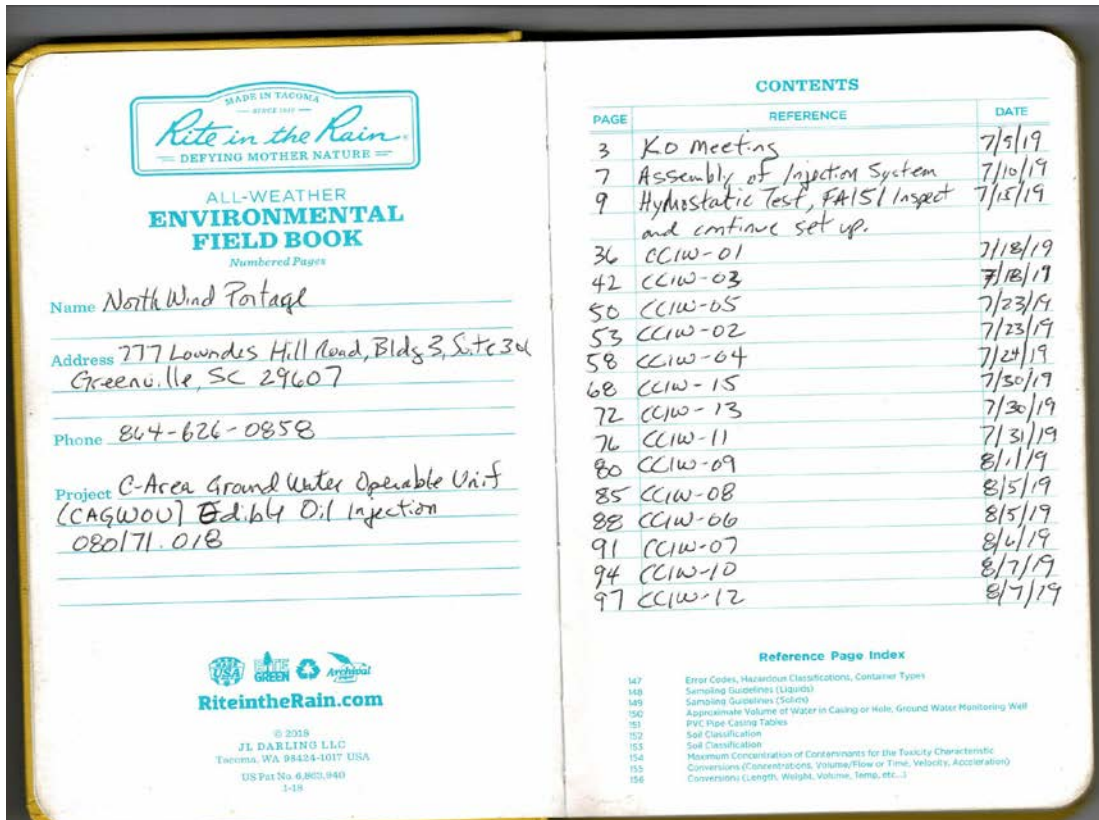 MADE IN TACOMA
Rite in the Rain
DEFYING MOTHER NATURE
ALL-WEATHER
ENVIRONMENTAL
FIELD BOOK
Numbered Pages
Name North Wind Portage
Address 777 Lowndes Hill Road, Bldg 3,
Greenville, SC 29607
Phone 864-626-0858
Project C-Area Ground Water Operable Unit
(CAGWOU) Edible Oil Injection
080171.018
MADE IN USA
GREEN
Archival
RiteintheRain.com
JL DARLING LLC
Tacoma, WA 98424-1017 USA
US Pat No 6,863,940
1-18
CONTENTS
PAGE REFERENCE DATE
3 KO Meeting 7/5/19
7 Assembly of Injection System 7/10/19
9 Hydrostatic Test, Inspect 7/15/19
and continue set up.
36 CCIW-01 7/18/19
42 CCIW-03 7/18/19
50 CCIW-05 7/23/19
53 CCIW-02 7/23/19
58 CCIW-04 7/24/19
68 CCIW-15 7/30/19
72 CCIW-13 7/30/19
76 CCIW-11 7/31/19
80 CCIW-09 8/1/19
85 CCIW-08 8/5/19
88 CCIW-06 8/5/19
91 CCIW-07 8/6/19
94 CCIW-10 8/7/19
97 CCIW-12 8/7/19
Reference Page Index
147 Error Codes, Hazardous Classifications, Container Types
148 Sampling Guidelines (Liquids)
149 Sampling Guidelines (Solids)
150 Approximate Volume of Water in Casing or Hole, Ground Water Monitoring Well
151 PVC Pipe Casing Tables
152 Soil Classification
153 Soil Classification
154 Maximum Concentration of Contaminants for the Toxicity Characteristic
155 Conversions (Concentrations, Volume/Flow or Time, Velocity, Acceleration)
156 Conversions (Length, Weight, Volume, Temp, etc...)